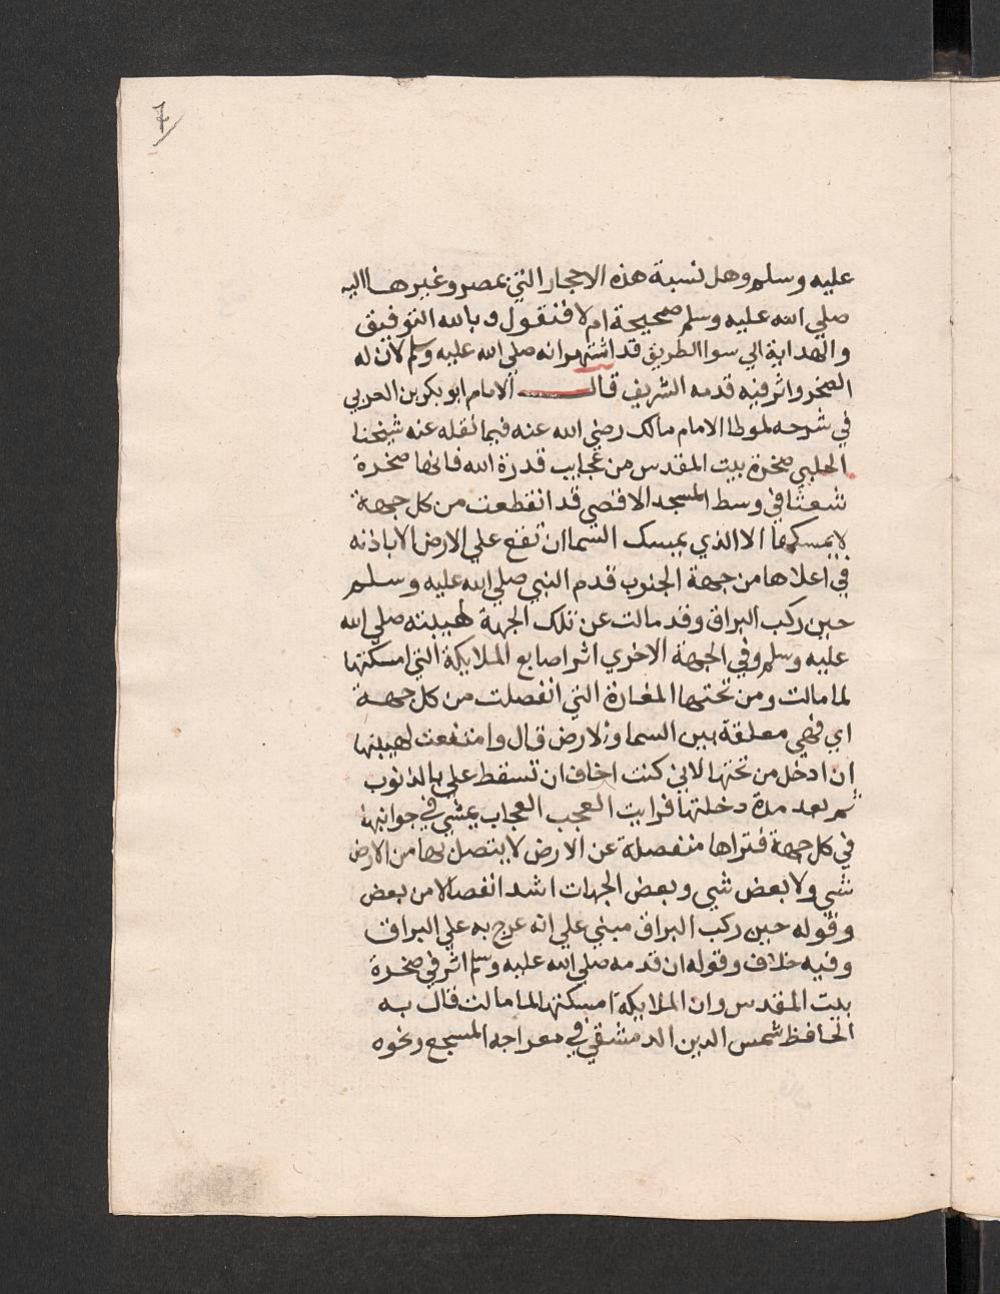 عليه وسلم وهل نسبة هذه الاحجار التي بمصر وغيرها اليه
صلي الله عليه وسلم صحيحة ام لا فنقول وبالله التوفيق
والهداية الي سوا الطريق قد اشتهر انه صلي الله عليه وسلم لان له
الصخر واثر فيه قدمه الشريف قال الامام ابو بكر بن العربي
في شرحه لموطا الامام مالك رضي الله عنه فيما نقله عنه شيخنا
الحلبي صخرة بيت المقدس من عجايب قدرة الله فانها صخرة
شعثا في وسط المسجد الاقصي قد انقطعت من كل جهة
لا يمسكها الا الذي يمسك السما ان تقع علي الارض الا باذنه
في اعلاها من جهة الجنوب قدم النبي صلي الله عليه وسلم
حين ركب البراق وقد مالت عن تلك الجهة لهيبته صلي الله
عليه وسلم وفي الجهة الاخري اثر اصابع الملايكة التي امسكتها
لما مالت ومن تحتها المغارة التي انفصلت من كل جهة
اي فهي معلقة بين السما والارض قال وامتنعت لهيبتها
ان ادخل من تحتها لاني كنت اخاف ان تسقط علي بالذنوب
ثم بعد مدة دخلتها فرايت العجب العجاب يمشي في جوانبها
في كل جهة فتراها منفصلة عن الارض لا يتصل بها من الارض
شي ولا بعض شي وبعض الجهات اشد انفصالا من بعض
وقوله حين ركب البراق مبني علي انه عرج به علي البراق
وفيه خلاف وقوله ان قدمه صلي الله عليه وسلم اثر في صخرة
بيت المقدس وان الملايكة امسكتها لما مالت قال به
الحافظ شمس الدين الدمشقي في معراجه المسجع ونحوه